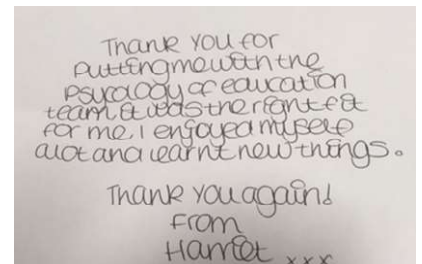 Thank you for
putting me with the
psycology of education
team it was the right fit
for me, I enjoyed myself
alot and learnt new things.
Thank you again!
From
Harriet xxx